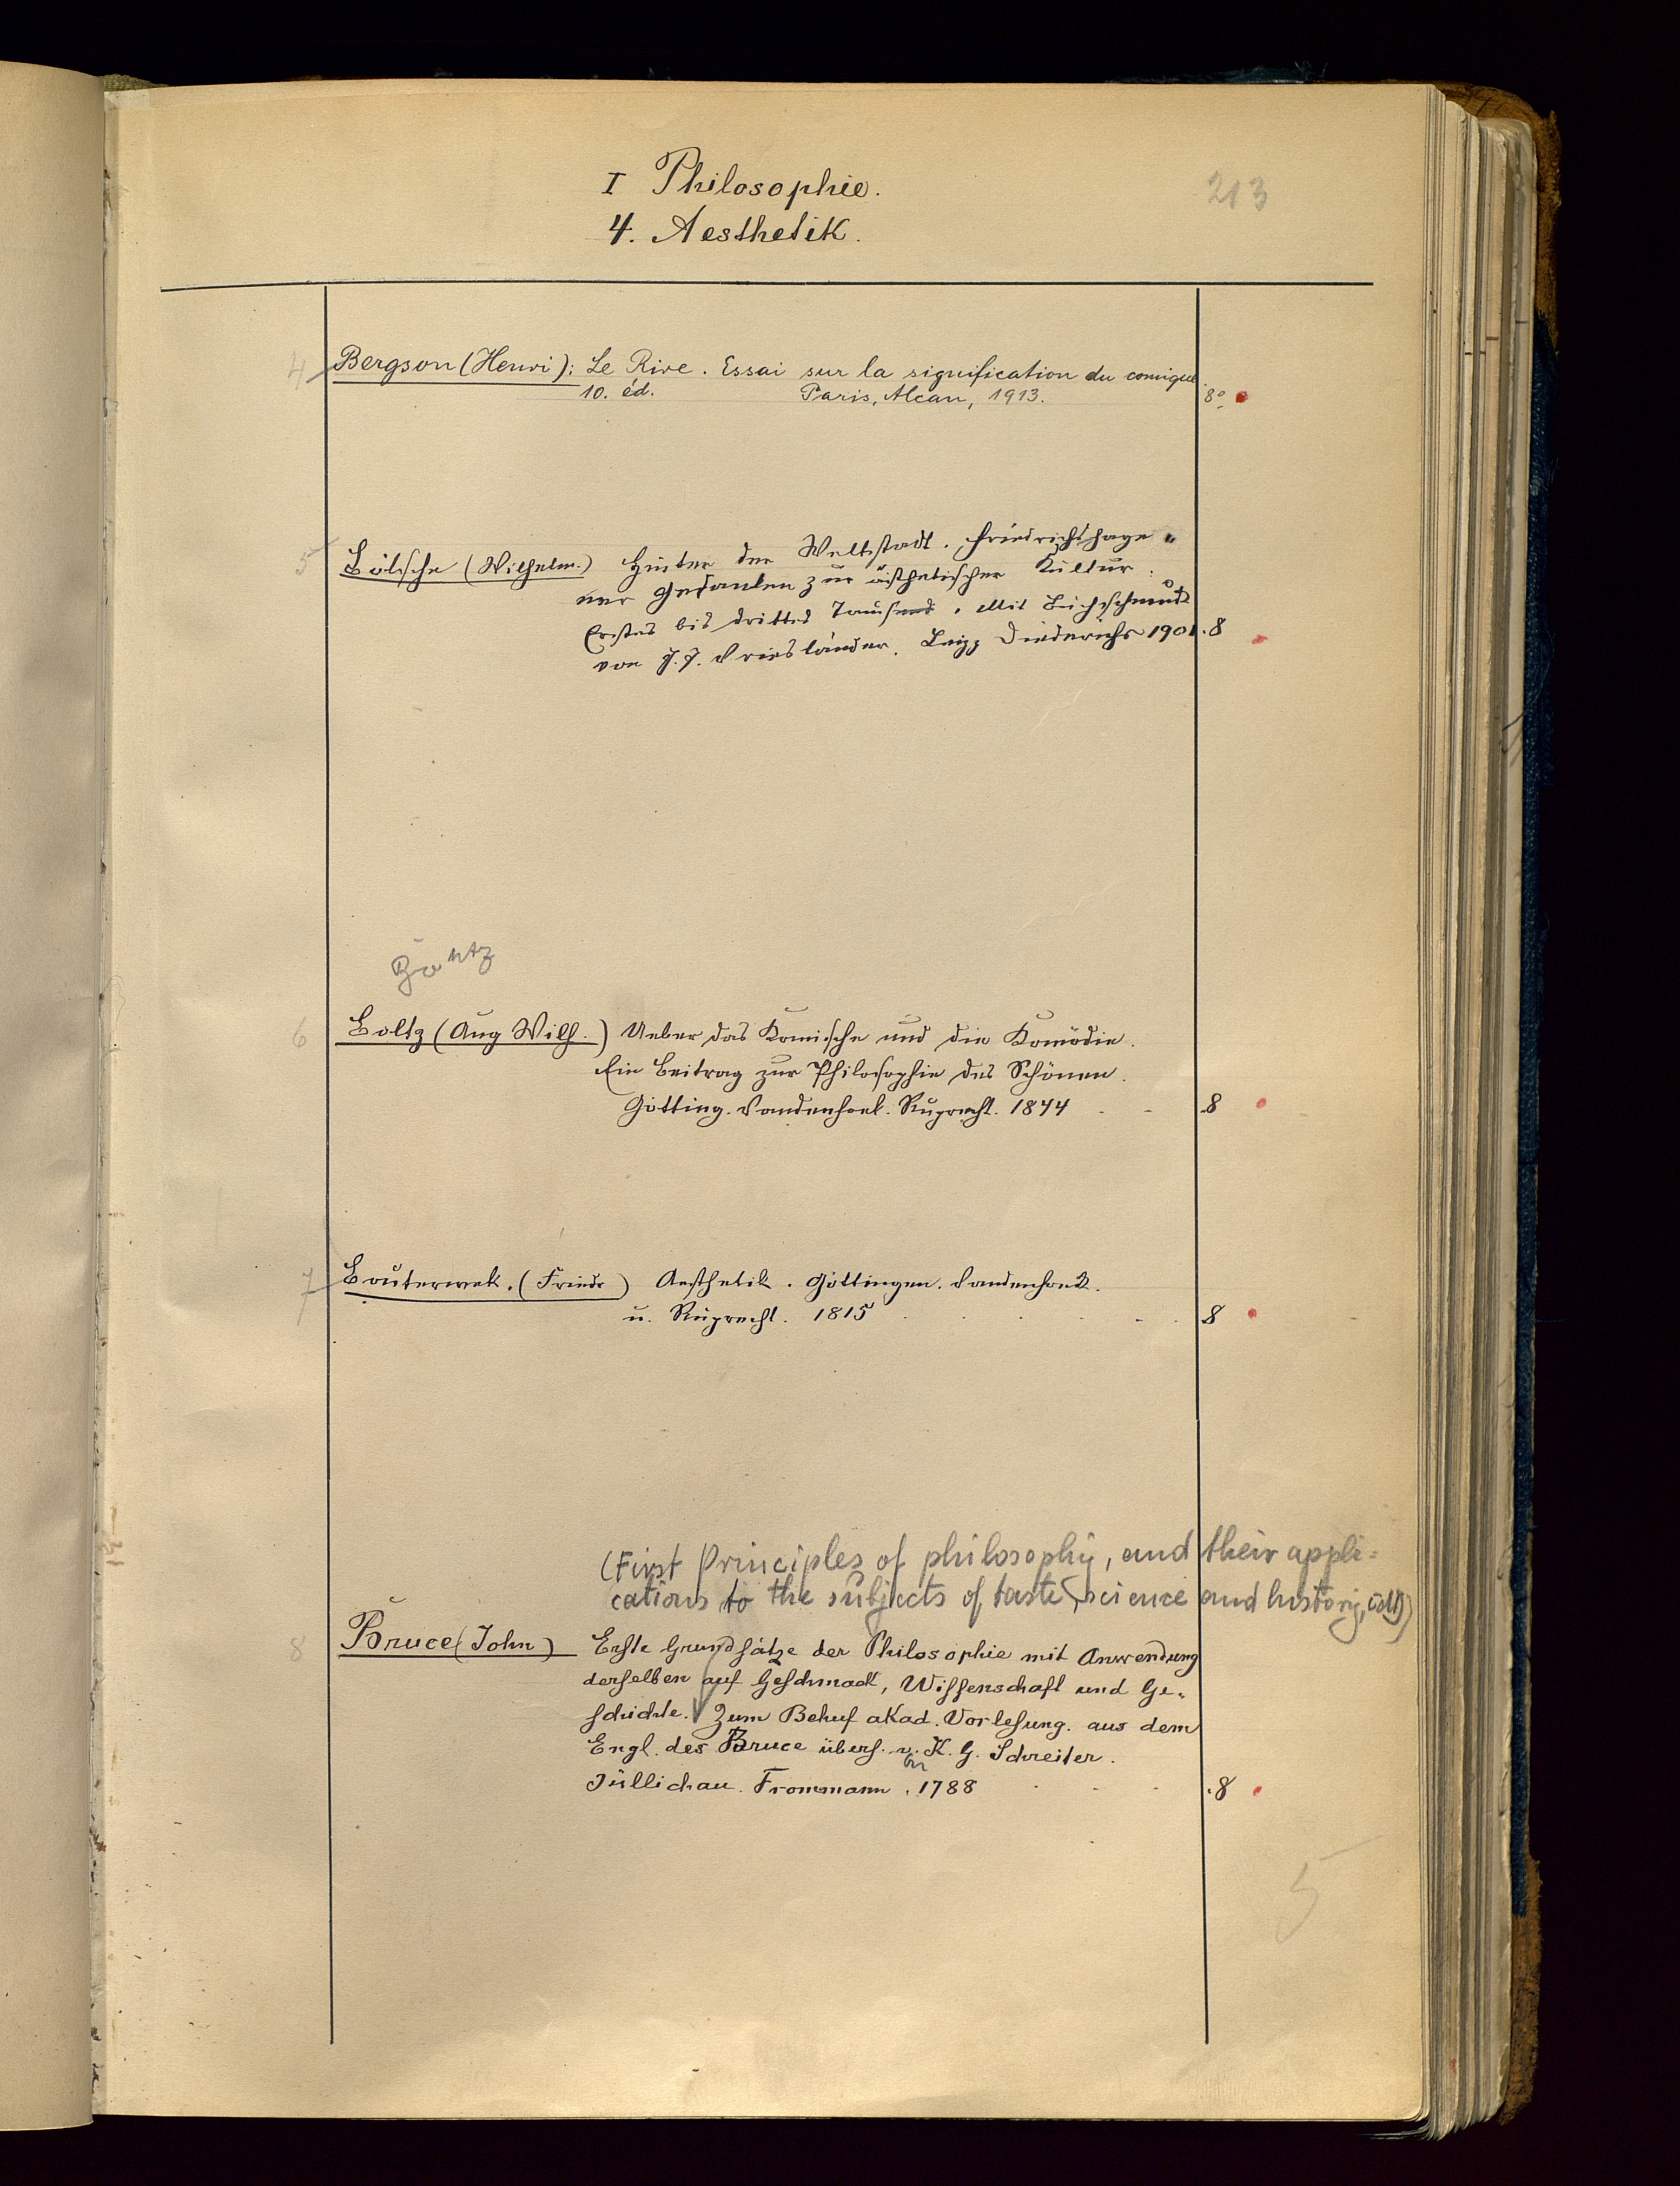 I Philosophie.
213
4. Aesthetik.
4 Bergson (Henri): Le Rire. Essai sur la signification du comique
10. éd. Paris, Alcan, 1913. 8°
5 Bölsche (Wilhelm.) Hinter der Weltstadt. Friedrichshage
ner Gedanken zur ästhetischen Kultur.
Erstes bis drittes Tausend. Mit Buchschmuck
von J. J. Vriesländer. Leipz Diederichs 1901. 8
6 Boltz (Aug Wilh.) Ueber das Komische und die Komödie.
Ein Beitrag zur Philosophie des Schönen.
Götting. Vandenhoek. Ruprecht. 1844 8
7 Bouterwek. (Friedr) Aesthetik. Göttingen. Vandenhoek.
u. Ruprecht. 1815 8
(First principles of philosophy, and their appli=
cations to the subjects of taste, science and history,
8 Bruce (John) Erste Grundsätze der Philosophie mit Anwendung
derselben auf Geschmack, Wissenschaft und Ge-
schichte. Zum Behuf akad. Vorlesung. aus dem
Engl. des Bruce übers. v. K. G. Schreiter.
Züllichau. Frommann. 1788 8
5